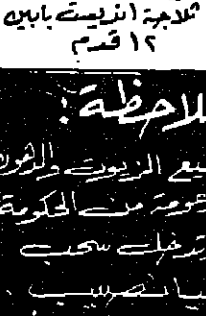 ثلاجة انديست بابين
١٢ قدم
ملاحظة:
بيع الزيوت والدهون
مدعومة من الحكومة
وتدخلك سحب
يانصيب